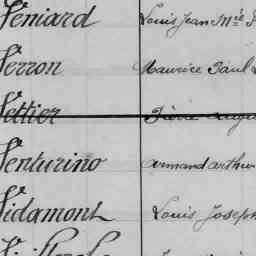 Véniard Louis Jean Mie
Verron Maurice Paul
Vettier Pierre Augu
Venturino Armand Arthur
Vidamont Louis Joseph